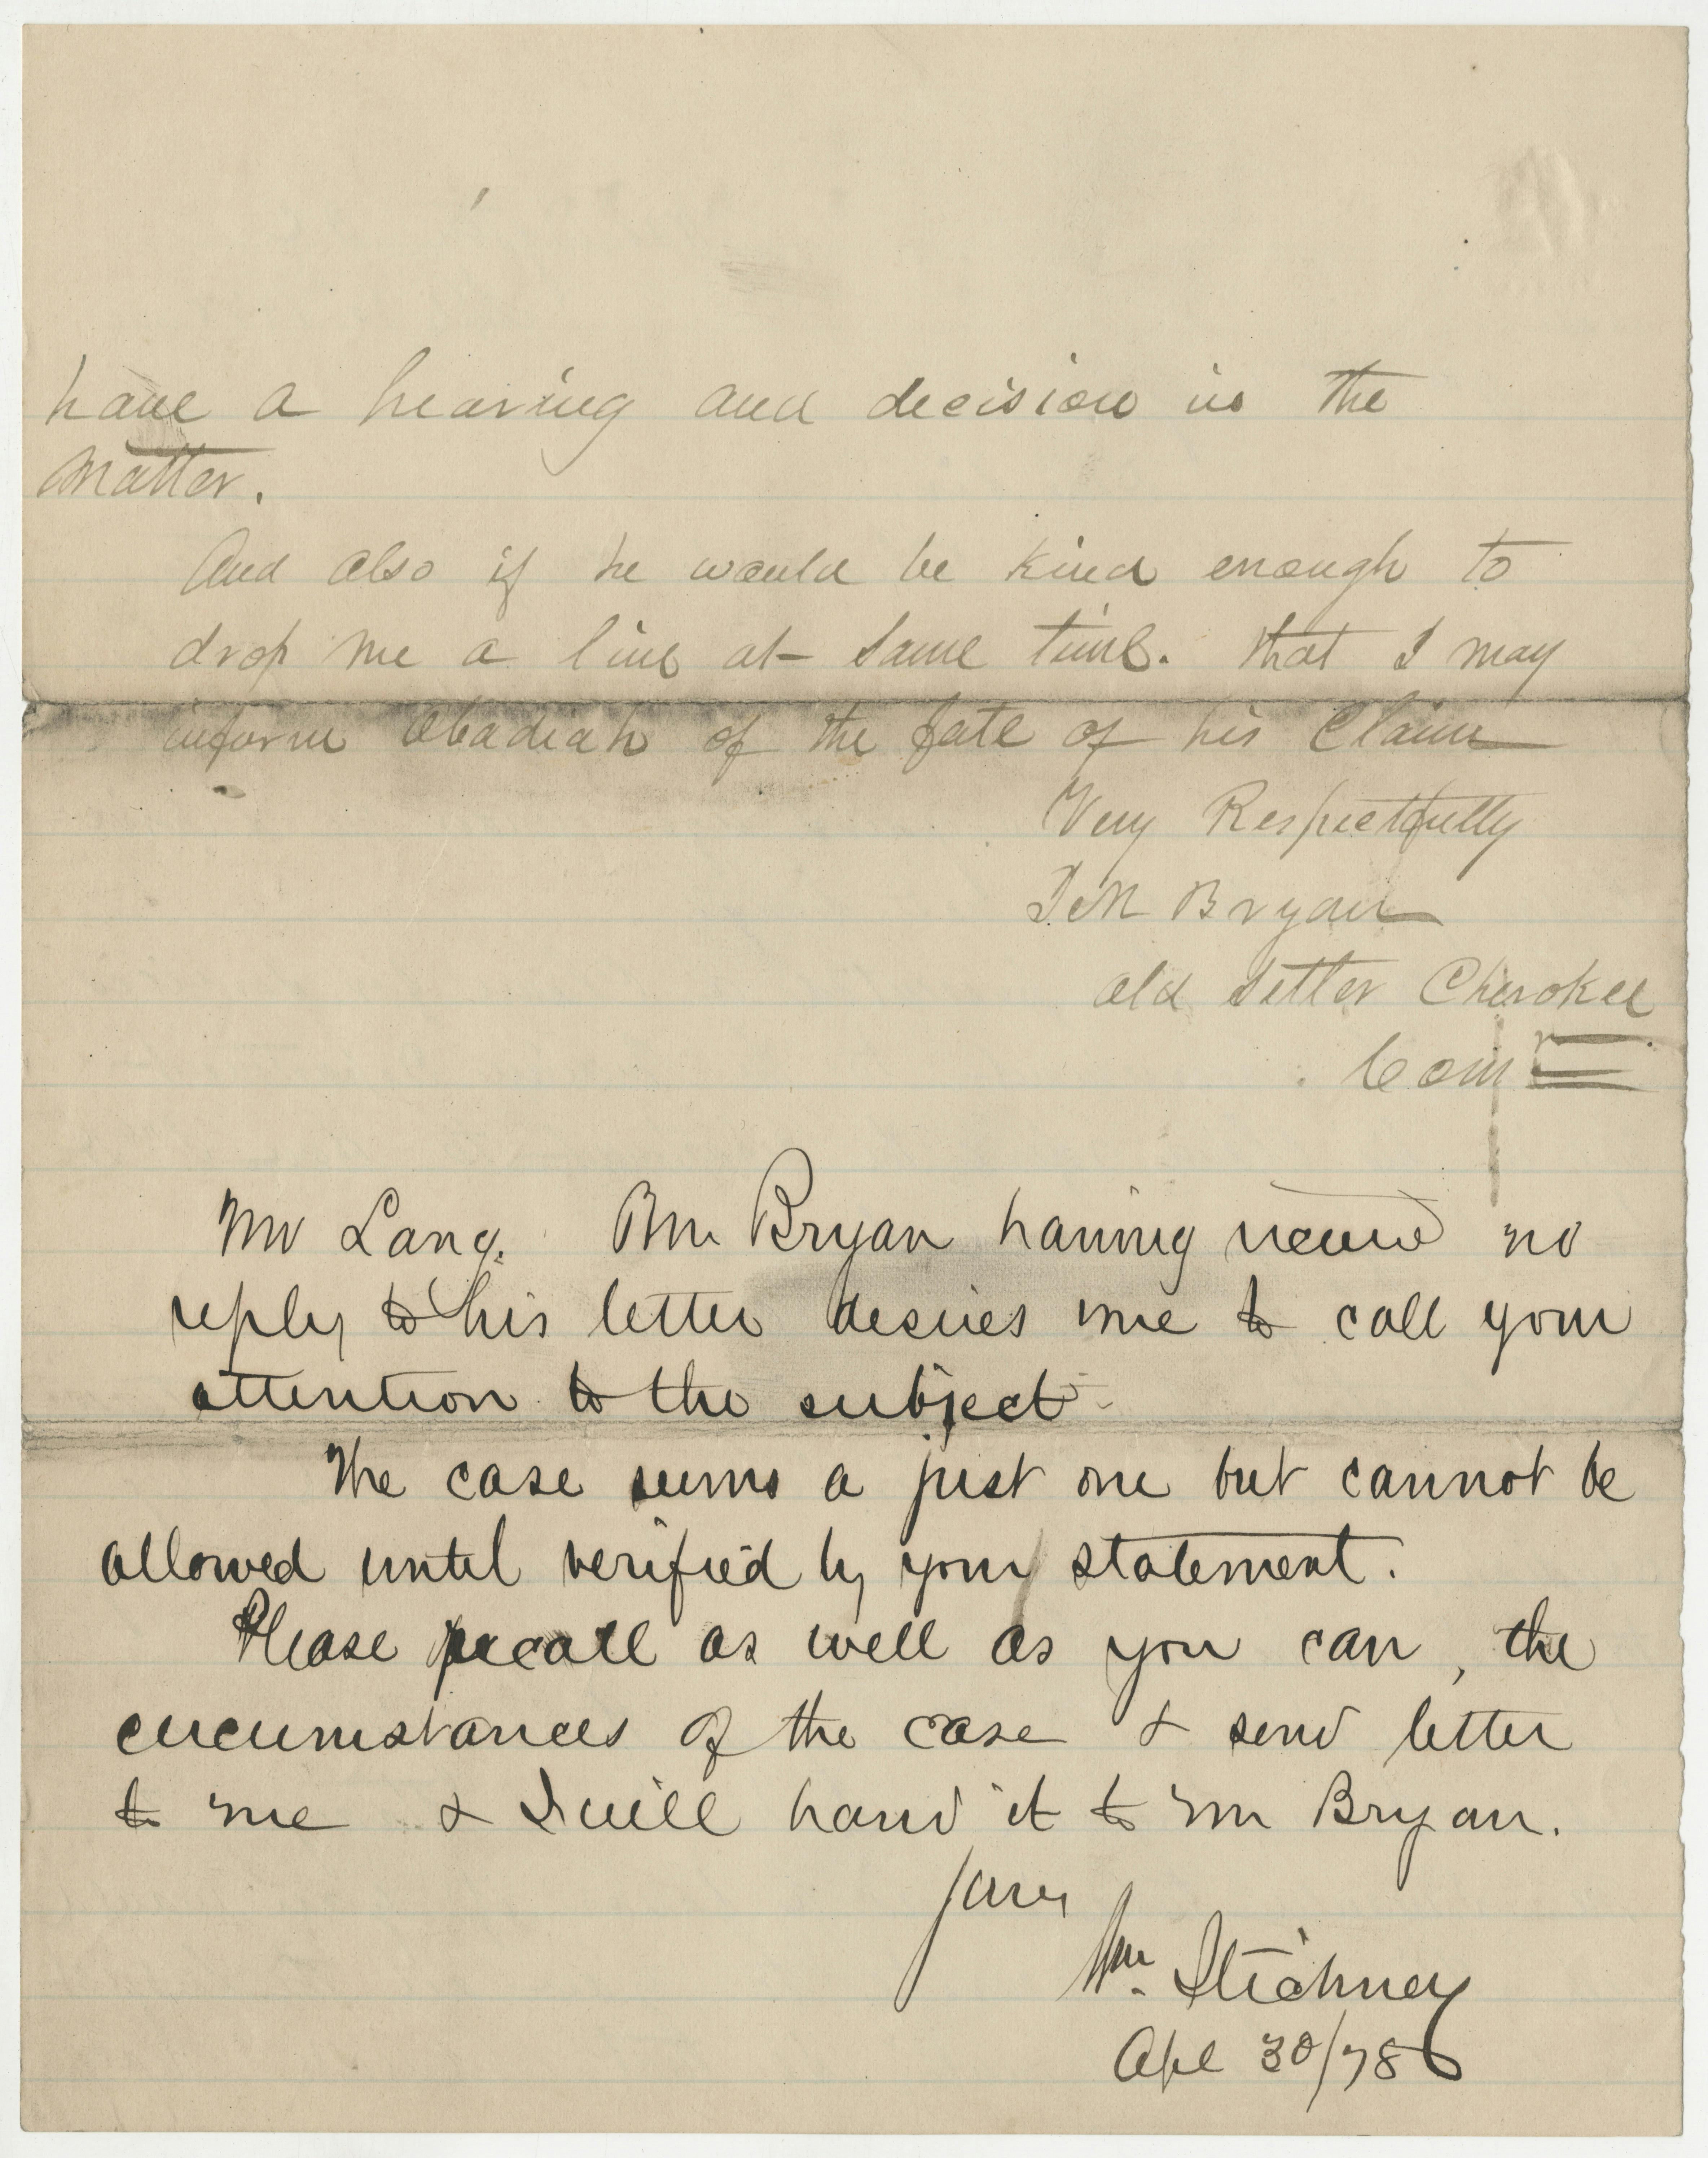 have a hearing and decision in the
matter.
And also if he would be kind enough to
drop me a line at same time. that I may
inform Obadiah of the fate of his Claim
Very Respectfully
J M Bryan
old Settler Cherokee
Comr
Mr Lang. Mr. Bryan having no
reply to his letter desires me to call your
attention to the subject.
The case seems a just one but cannot be
allowed until verified by your statement.
Please recall as well as you can, the
circumstances of the case & send letter
to me & I will hand it to Mr Bryan.
Yours
Wm. Stickney
Apl 30/78